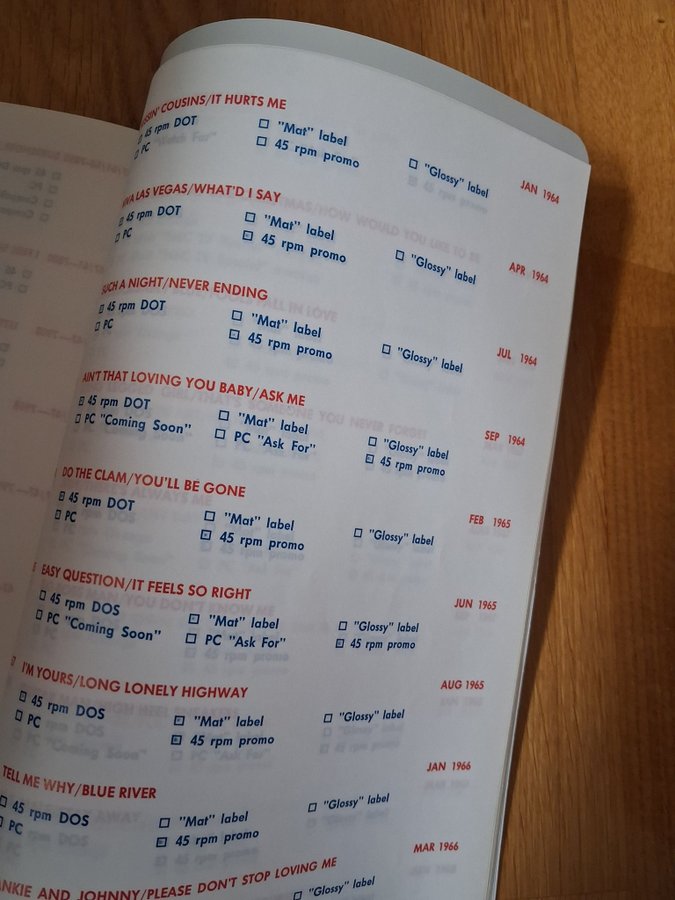 COUSINS/IT HURTS ME
45 rpm DOT "Mat" label "Glossy" label JAN 1964
PC 45 rpm promo
VIVA LAS VEGAS/WHAT'D I SAY
45 rpm DOT "Mat" label "Glossy" label APR 1964
PC 45 rpm promo
SUCH A NIGHT/NEVER ENDING
45 rpm DOT "Mat" label "Glossy" label JUL 1964
PC 45 rpm promo
AIN'T THAT LOVING YOU BABY/ASK ME
45 rpm DOT "Mat" label "Glossy" label SEP 1964
PC "Coming Soon" PC "Ask For" 45 rpm promo
DO THE CLAM/YOU'LL BE GONE
45 rpm DOT "Mat" label "Glossy" label FEB 1965
PC 45 rpm promo
EASY QUESTION/IT FEELS SO RIGHT
45 rpm DOS "Mat" label "Glossy" label JUN 1965
PC "Coming Soon" PC "Ask For" 45 rpm promo
I'M YOURS/LONG LONELY HIGHWAY
45 rpm DOS "Mat" label "Glossy" label AUG 1965
PC 45 rpm promo
TELL ME WHY/BLUE RIVER
45 rpm DOS "Mat" label "Glossy" label JAN 1966
PC 45 rpm promo
AND JOHNNY/PLEASE DON'T STOP LOVING ME
"Glossy" label MAR 1966